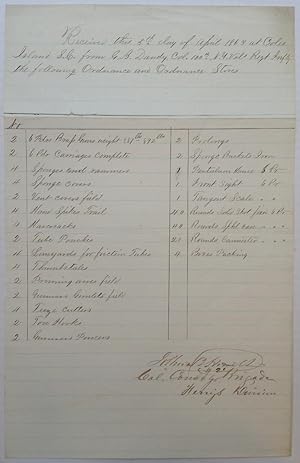 Received this 5th day of April 1863 at Coles
Island S.C. from G. B. Dandy Col. 100th N.Y. Vols Regt Infty
the following Ordnance and Ordnance Stores
No
2 6 Pdr Guns weight
2 6 Pdr Carriages complete
4 Sponges and rammers
4 Sponge covers
2 Vent covers field
4 Hand Spikes Trail
4 Haversacks
2 Tube Pouches
4 Lanyards for friction Tubes
4 Thumbstalls
2 Priming wires field
2 Gunners Gimlets field
4 Fuze Cutters
2 Tow Hooks
2 Gunners Pincers
2
2 Sponge Buckets Iron
1 Pendulum Hausse 6 Pdr
1 Front Sight 6 Pdr
1 Tangent Scale " "
Rounds Solid Shot for 6 Pdr
Rounds Sphl case " "
Rounds Cannister " "
4 Boxes Packing
Col. Comdg Brigade
Division